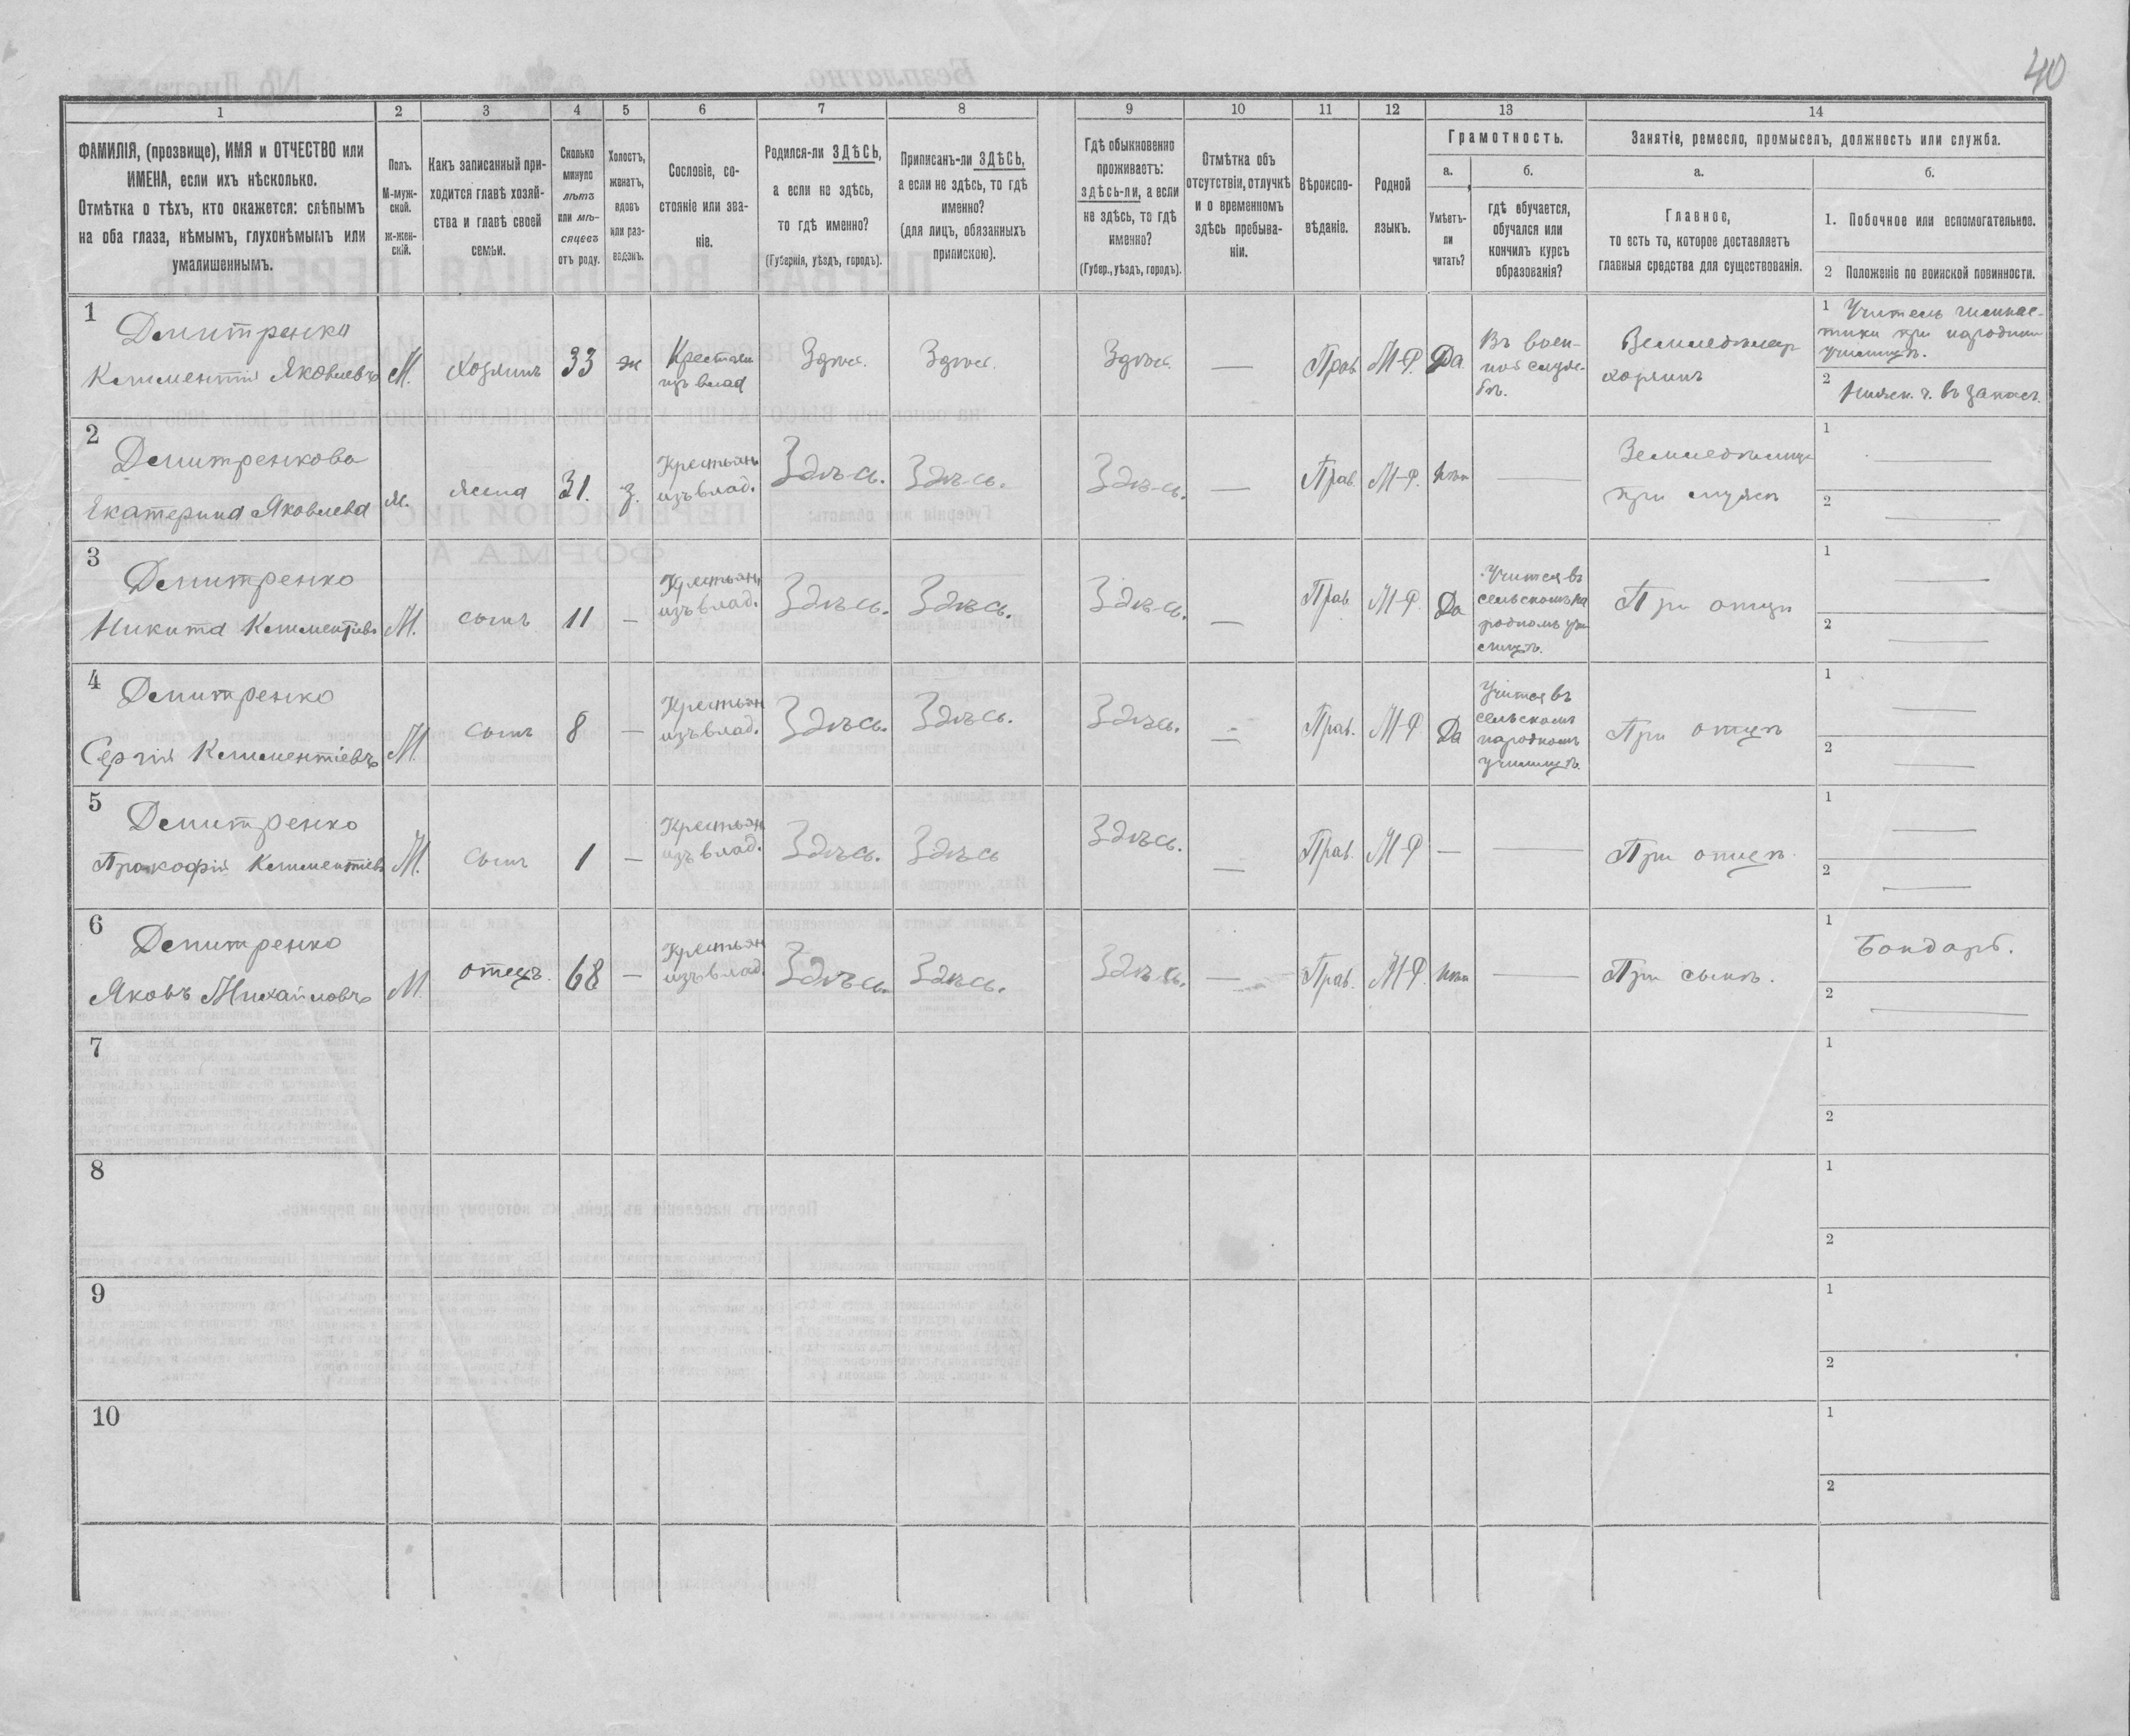 40
1
2
3
4
5
6
7
8
9
10
11
12
13
14
ФАМИЛІЯ, (прозвище), ИМЯ и ОТЧЕСТВО или
ИМЕНА, если ихъ нѣсколько.
Отмѣтка о тѣхъ, кто окажется: слѣпымъ
на оба глаза, нѣмымъ, глухонѣмымъ или
умалишеннымъ.
Полъ.
М-муж-
ской.
ж-жен-
скій.
Какъ записанный при-
ходится главѣ хозяй-
ства и главѣ своей
семьи.
Сколько
минуло
лѣтъ
или мѣ-
сяцевъ
отъ роду.
Холостъ,
женатъ,
вдовъ
или раз-
веденъ.
Сословіе, со-
стояніе или зва-
ніе.
Родился-ли ЗДѢСЬ,
а если не здѣсь,
то гдѣ именно?
(Губернія, уѣздъ, городъ).
Приписанъ-ли ЗДѢСЬ,
а если не здѣсь, то гдѣ
именно?
(для лицъ, обязанныхъ
припискою).
Гдѣ обыкновенно
проживаетъ:
здѣсь-ли, а если
не здѣсь, то гдѣ
именно?
(Губер., уѣздъ, городъ).
Отмѣтка объ
отсутствіи, отлучкѣ
и о временномъ
здѣсь пребыва-
ніи.
Вѣроиспо-
вѣданіе.
Родной
языкъ.
Грамотность.
а.
б.
Умѣетъ-
ли
читать?
гдѣ обучается,
обучался или
кончилъ курсъ
образованія?
Занятіе, ремесло, промыселъ, должность или служба.
а.
б.
Главное,
то есть то, которое доставляетъ
главныя средства для существованія.
1. Побочное или вспомогательное.
2 Положеніе по воинской повинности.
1
Демитренко
Климентій Яковлевъ
М.
Хозяинъ
33
ж
Крестьян
изъ влад
Здѣсь.
Здѣсь.
Здѣсь.
—
Прав
М-Р.
Да
Въ воен-
ной служ-
бѣ.
Земледѣлец
хозяинъ
1 Учитель гимнас-
тики при народном
училищѣ.
2 Нижн. ч. въ запасѣ.
2
Демитренкова
Екатерина Яковлева
м.
жена
31.
з.
Крестьянъ
изъ влад.
Здѣсь.
Здѣсь.
Здѣсь.
—
Прав.
М-Р.
Нѣт
—
Земледѣлица
при мужѣ
1 —
2 —
3
Демитренко
Никита Климентіевъ
М.
сынъ
11
—
Крестьян.
изъ влад.
Здѣсь.
Здѣсь.
Здѣсь.
—
Прав
М-Р
Да
Учится въ
сельскомъ на
родномъ учи
лищѣ.
При отцѣ
1 —
2 —
4
Демитренко
Сергій Климентіевъ
М.
сынъ
8
—
Крестьян
изъ влад.
Здѣсь.
Здѣсь.
Здѣсь.
—
Прав.
М-Р
Да
Учится въ
сельскомъ
народномъ
училищѣ.
При отцѣ
1 —
2 —
5
Демитренко
Прокофій Климентіевъ
М.
сынъ
1
—
Крестьян
изъ влад.
Здѣсь.
Здѣсь
Здѣсь.
—
Прав.
М-Р
—
—
При отцѣ.
1 —
2 —
6
Демитренко
Яковъ Михайловъ
М.
отецъ.
68
—
Крестьян
изъ влад.
Здѣсь.
Здѣсь.
Здѣсь.
—
Прав.
М-Р.
Нѣт
—
При сынѣ.
1 Бондарь.
2 —
7
1
2
8
1
2
9
1
2
10
1
2